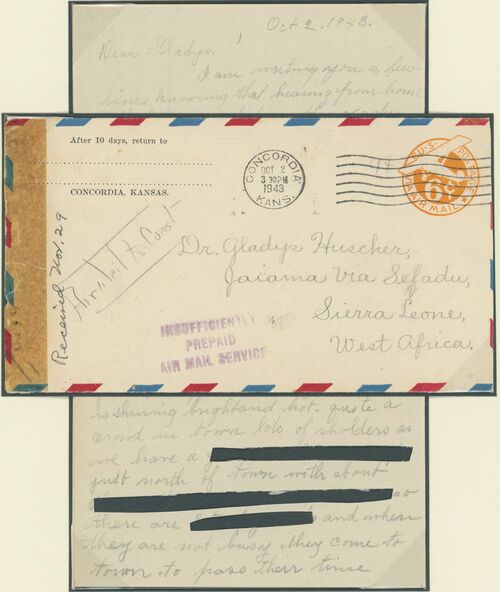 Oct 2. 1943.
Dear Gladys.
I am writing you a few
lines knowing that hearing from home
After 10 days, return to
CONCORDIA, KANSAS.
CONCORDIA
OCT 2
3 30 PM
1943
KANS.
U.S. POSTAGE
6¢
AIR MAIL
Received Nov. 29
Dr. Gladys Huscher,
Jaiama Via Sefadu,
Sierra Leone,
West Africa.
INSUFFICIENTLY
PREPAID
AIR MAIL SERVICE
is shining bright and hot. quite a
crowd in town lots of sholders as
we have a
just north of town with about
so
there are and when
they are not busy they come to
town to pass their time